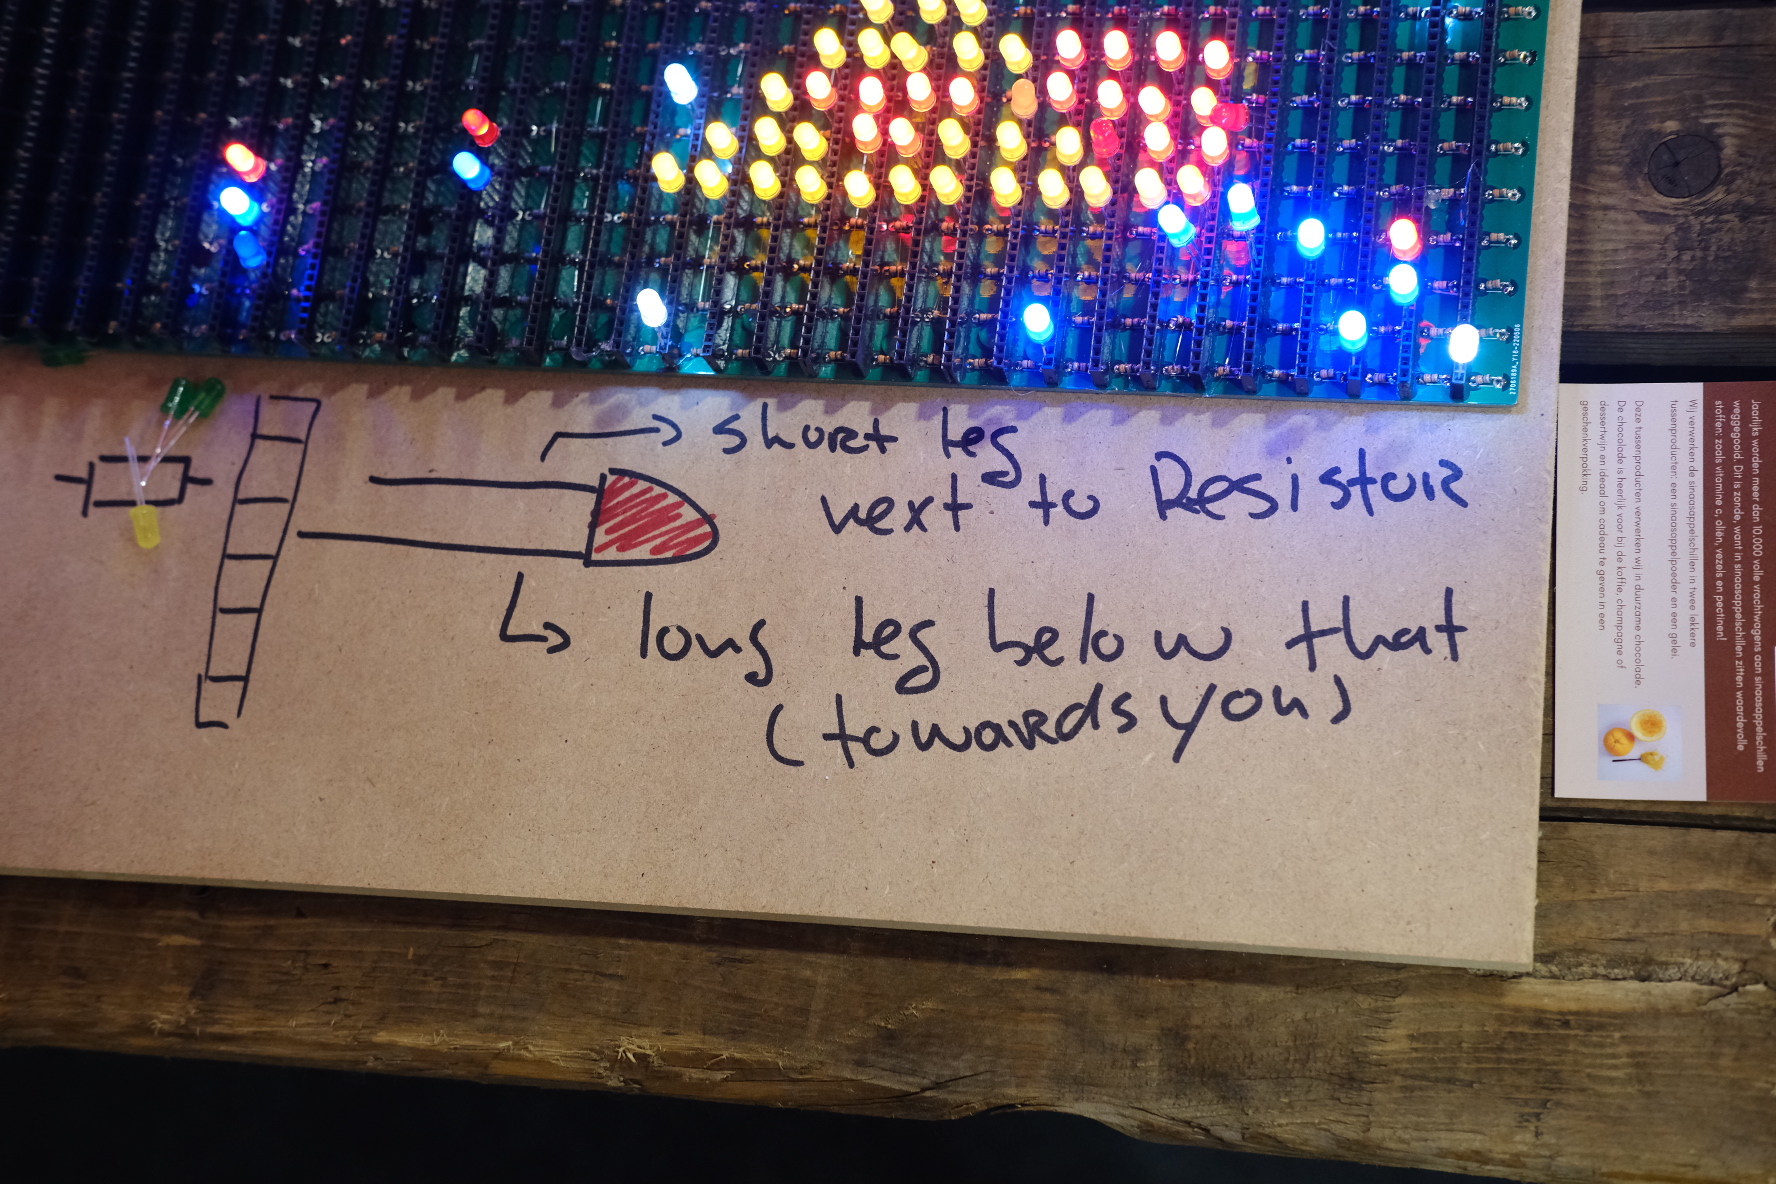 short leg
next to Resistor
long leg below that
(towards you)
Jaarlijks worden meer dan 10.000 volle vrachtwagens aan sinaasappelschillen
weggegooid. Dit is zonde, want in sinaasappelschillen zitten waardevolle
stoffen: zoals vitamine c, oliën, vezels en pectinen!
Wij verwerken de sinaasappelschillen in twee lekkere
tussenproducten: een sinaasappelpoeder en een gelei.
Deze tussenproducten verwerken wij in duurzame chocolade.
De chocolade is heerlijk voor bij de koffie, champagne of
dessertwijn en ideaal om cadeau te geven in een
geschenkverpakking.